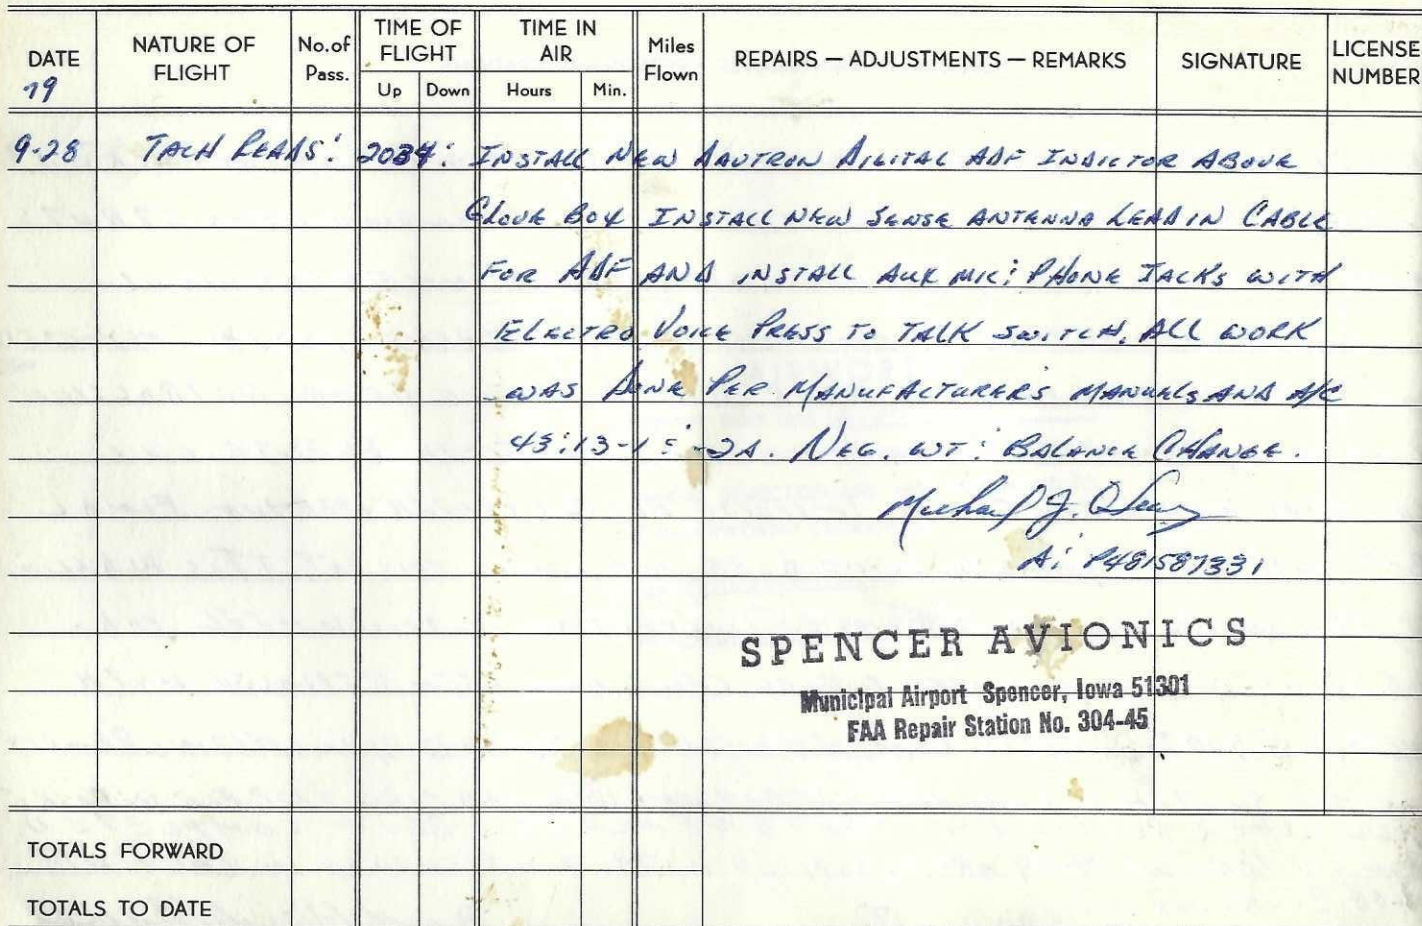 DATE NATURE OF FLIGHT No. of Pass. TIME OF FLIGHT TIME IN AIR Miles Flown REPAIRS — ADJUSTMENTS — REMARKS SIGNATURE LICENSE NUMBER
79 Up Down Hours Min.
9-28 TACH READS: 2034: INSTALL NEW DAVTRON DIGITAL ADF INDICTOR ABOVE
GLOVE BOX INSTALL NEW SENSE ANTENNA LEAD IN CABLE
FOR ADF AND INSTALL AUX MIC: PHONE JACKS WITH
ELECTRO VOICE PRESS TO TALK SWITCH. ALL WORK
WAS DONE PER MANUFACTURERS MANUELS AND A/C
43:13-1: -2A. NEG. WT: BALANCE CHANGE.
Michael J.
A: P481587331
SPENCER AVIONICS
Municipal Airport Spencer, Iowa 51301
FAA Repair Station No. 304-45
TOTALS FORWARD
TOTALS TO DATE